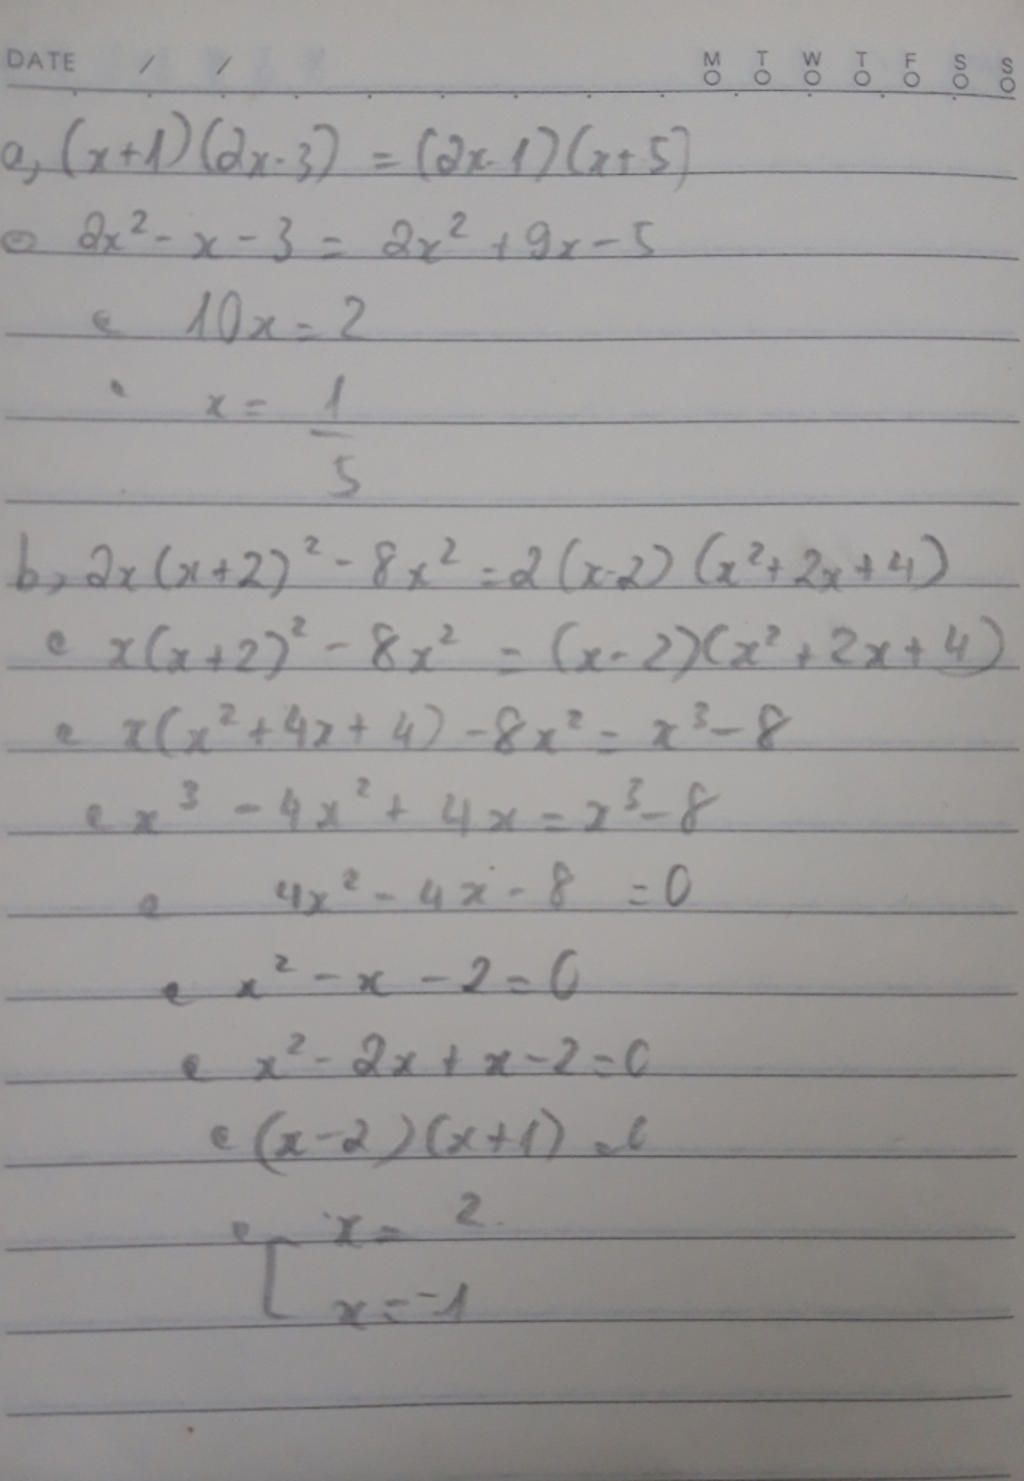 DATE / / M T W T F S S
a, (x+1)(2x-3) = (2x-1)(x+5)
⇔ 2x² - x - 3 = 2x² + 9x - 5
⇔ 10x = 2
x = 1/5
b, 2x(x+2)² - 8x² = 2(x-2)(x²+2x+4)
⇔ x(x+2)² - 8x² = (x-2)(x²+2x+4)
⇔ x(x²+4x+4) - 8x² = x³ - 8
⇔ x³ - 4x² + 4x = x³ - 8
⇔ 4x² - 4x - 8 = 0
⇔ x² - x - 2 = 0
⇔ x² - 2x + x - 2 = 0
⇔ (x-2)(x+1) = 0
⇔ [ x = 2
x = -1